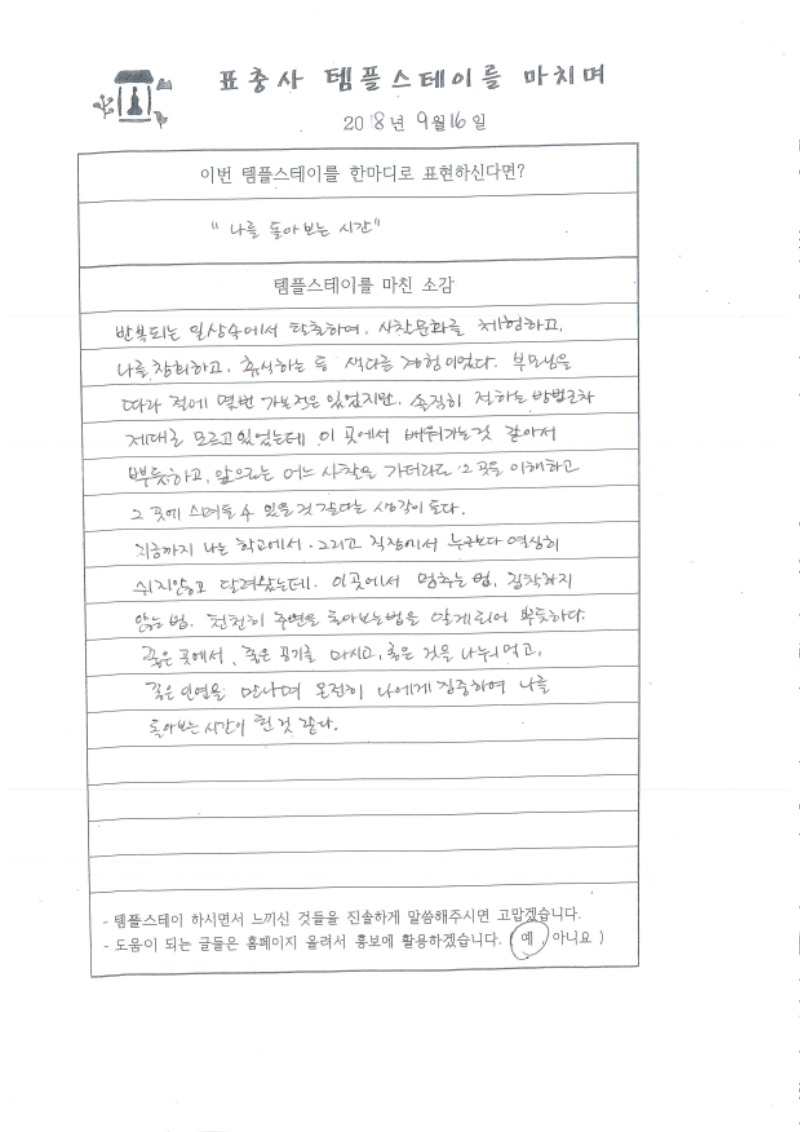 표충사 템플스테이를 마치며
2018년 9월 16일
이번 템플스테이를 한마디로 표현하신다면?
"나를 돌아보는 시간"
템플스테이를 마친 소감
반복되는 일상속에서 탈출하여, 사찰문화를 체험하고,
나를 참회하고, 휴식하는 등 색다른 경험이었다. 부모님을
따라 절에 몇번 가본적은 있었지만, 솔직히 절하는 방법조차
제대로 모르고있었는데 이 곳에서 배워가는것 같아서
뿌듯하고, 앞으로는 어느 사찰을 가더라도 그 곳을 이해하고
그 곳에 스며들 수 있을것 같다는 생각이 든다.
지금까지 나는 학교에서, 그리고 직장에서 누구보다 열심히
쉬지않고 달려왔는데, 이곳에서 멈추는 법, 집착하지
않는 법, 천천히 주변을 돌아보는법을 알게되어 뿌듯하다.
좋은 곳에서, 좋은 공기를 마시고, 좋은 것을 나누어먹고,
좋은 인연을 만나며 온전히 나에게 집중하여 나를
돌아보는 시간이 된 것 같다.
- 템플스테이 하시면서 느끼신 것들을 진솔하게 말씀해주시면 고맙겠습니다.
- 도움이 되는 글들은 홈페이지 올려서 홍보에 활용하겠습니다. ( 예 , 아니요 )